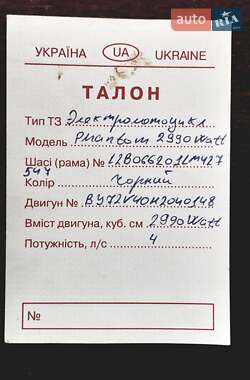 auto RIA
УКРАЇНА UA UKRAINE
ТАЛОН
Тип ТЗ Электромотоцикл
Модель Phantom 2990Watt
Шасі (рама) № L2B066201LM427
547
Колір Чорний
Двигун № BY72V40H2040148
Вміст двигуна, куб. см 2990Watt
Потужність, л/с 4
№